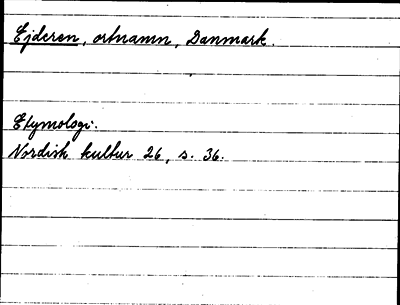 Ejderen, ortnamn, Danmark.
Etymologi.
Nordisk kultur 26, s. 36.